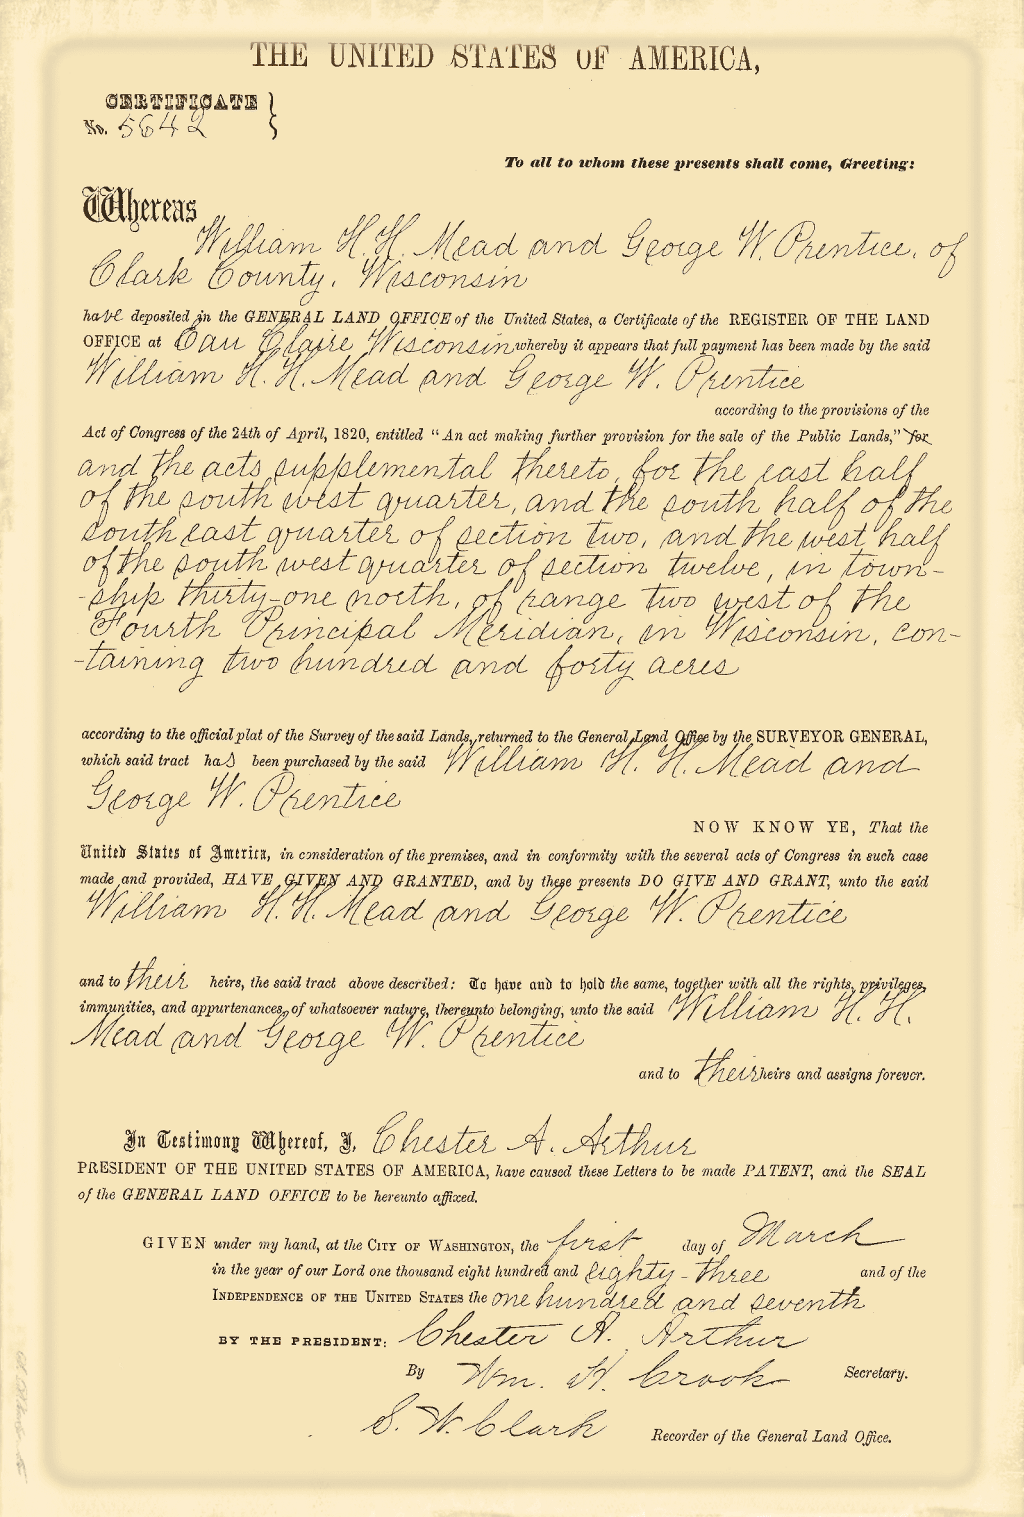 THE UNITED STATES OF AMERICA,
CERTIFICATE
No. 5642
To all to whom these presents shall come, Greeting:
Whereas
William H. H. Mead and George W. Prentice, of
Clark County, Wisconsin
have deposited in the GENERAL LAND OFFICE of the United States, a Certificate of the REGISTER OF THE LAND
OFFICE at Eau Claire Wisconsin whereby it appears that full payment has been made by the said
William H. H. Mead and George W. Prentice
according to the provisions of the
Act of Congress of the 24th of April, 1820, entitled "An act making further provision for the sale of the Public Lands," for
and the acts supplemental thereto, for the east half
of the south west quarter, and the south half of the
south east quarter of section two, and the west half
of the south west quarter of section twelve, in town-
-ship thirty-one north, of range two west of the
Fourth Principal Meridian, in Wisconsin, con-
-taining two hundred and forty acres
according to the official plat of the Survey of the said Lands, returned to the General Land Office by the SURVEYOR GENERAL,
which said tract has been purchased by the said William H. H. Mead and
George W. Prentice
NOW KNOW YE, That the
United States of America, in consideration of the premises, and in conformity with the several acts of Congress in such case
made and provided, HAVE GIVEN AND GRANTED, and by these presents DO GIVE AND GRANT, unto the said
William H. H. Mead and George W. Prentice
and to their heirs, the said tract above described: To have and to hold the same, together with all the rights, privileges,
immunities, and appurtenances, of whatsoever nature, thereunto belonging, unto the said William H. H.
Mead and George W. Prentice
and to their heirs and assigns forever.
In Testimony Whereof, I, Chester A. Arthur
PRESIDENT OF THE UNITED STATES OF AMERICA, have caused these Letters to be made PATENT, and the SEAL
of the GENERAL LAND OFFICE to be hereunto affixed.
GIVEN under my hand, at the CITY OF WASHINGTON, the first day of March
in the year of our Lord one thousand eight hundred and eighty-three and of the
INDEPENDENCE OF THE UNITED STATES the one hundred and seventh
BY THE PRESIDENT: Chester A. Arthur
By Wm. H. Crook Secretary.
S. W. Clark Recorder of the General Land Office.